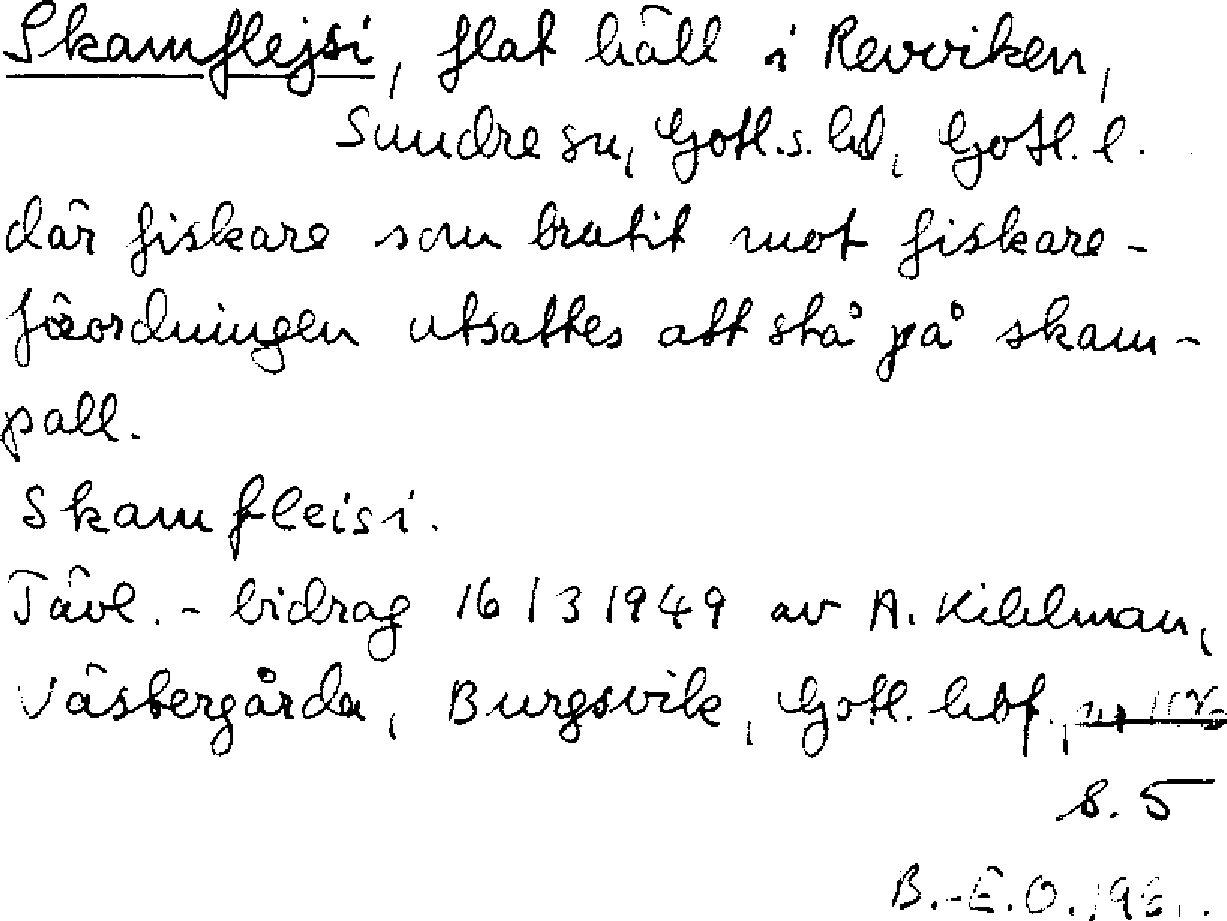 Skamflejsi, flat häll i Revviken,
Sundre sn, Gotl.s. hd, Gotl. l.
där fiskare som brutit mot fiskare-
förordningen utsattes att stå på skam-
pall.
Skamfleisi.
Tävl.-bidrag 16/3 1949 av A. Kihlman,
Västergårda, Burgsvik, Gotl.
s. 5
B.-E.O.